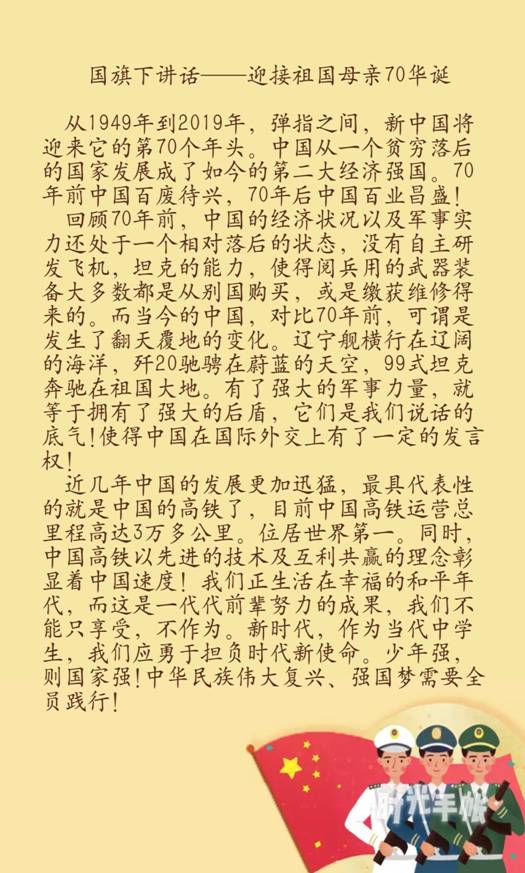 国旗下讲话——迎接祖国母亲70华诞
从1949年到2019年，弹指之间，新中国将
迎来它的第70个年头。中国从一个贫穷落后
的国家发展成了如今的第二大经济强国。70
年前中国百废待兴，70年后中国百业昌盛！
回顾70年前，中国的经济状况以及军事实
力还处于一个相对落后的状态，没有自主研
发飞机，坦克的能力，使得阅兵用的武器装
备大多数都是从别国购买，或是缴获维修得
来的。而当今的中国，对比70年前，可谓是
发生了翻天覆地的变化。辽宁舰横行在辽阔
的海洋，歼20驰骋在蔚蓝的天空，99式坦克
奔驰在祖国大地。有了强大的军事力量，就
等于拥有了强大的后盾，它们是我们说话的
底气！使得中国在国际外交上有了一定的发言
权！
近几年中国的发展更加迅猛，最具代表性
的就是中国的高铁了，目前中国高铁运营总
里程高达3万多公里。位居世界第一。同时，
中国高铁以先进的技术及互利共赢的理念彰
显着中国速度！我们正生活在幸福的和平年
代，而这是一代代前辈努力的成果，我们不
能只享受，不作为。新时代，作为当代中学
生，我们应勇于担负时代新使命。少年强，
则国家强！中华民族伟大复兴、强国梦需要全
员践行！
时光手帐